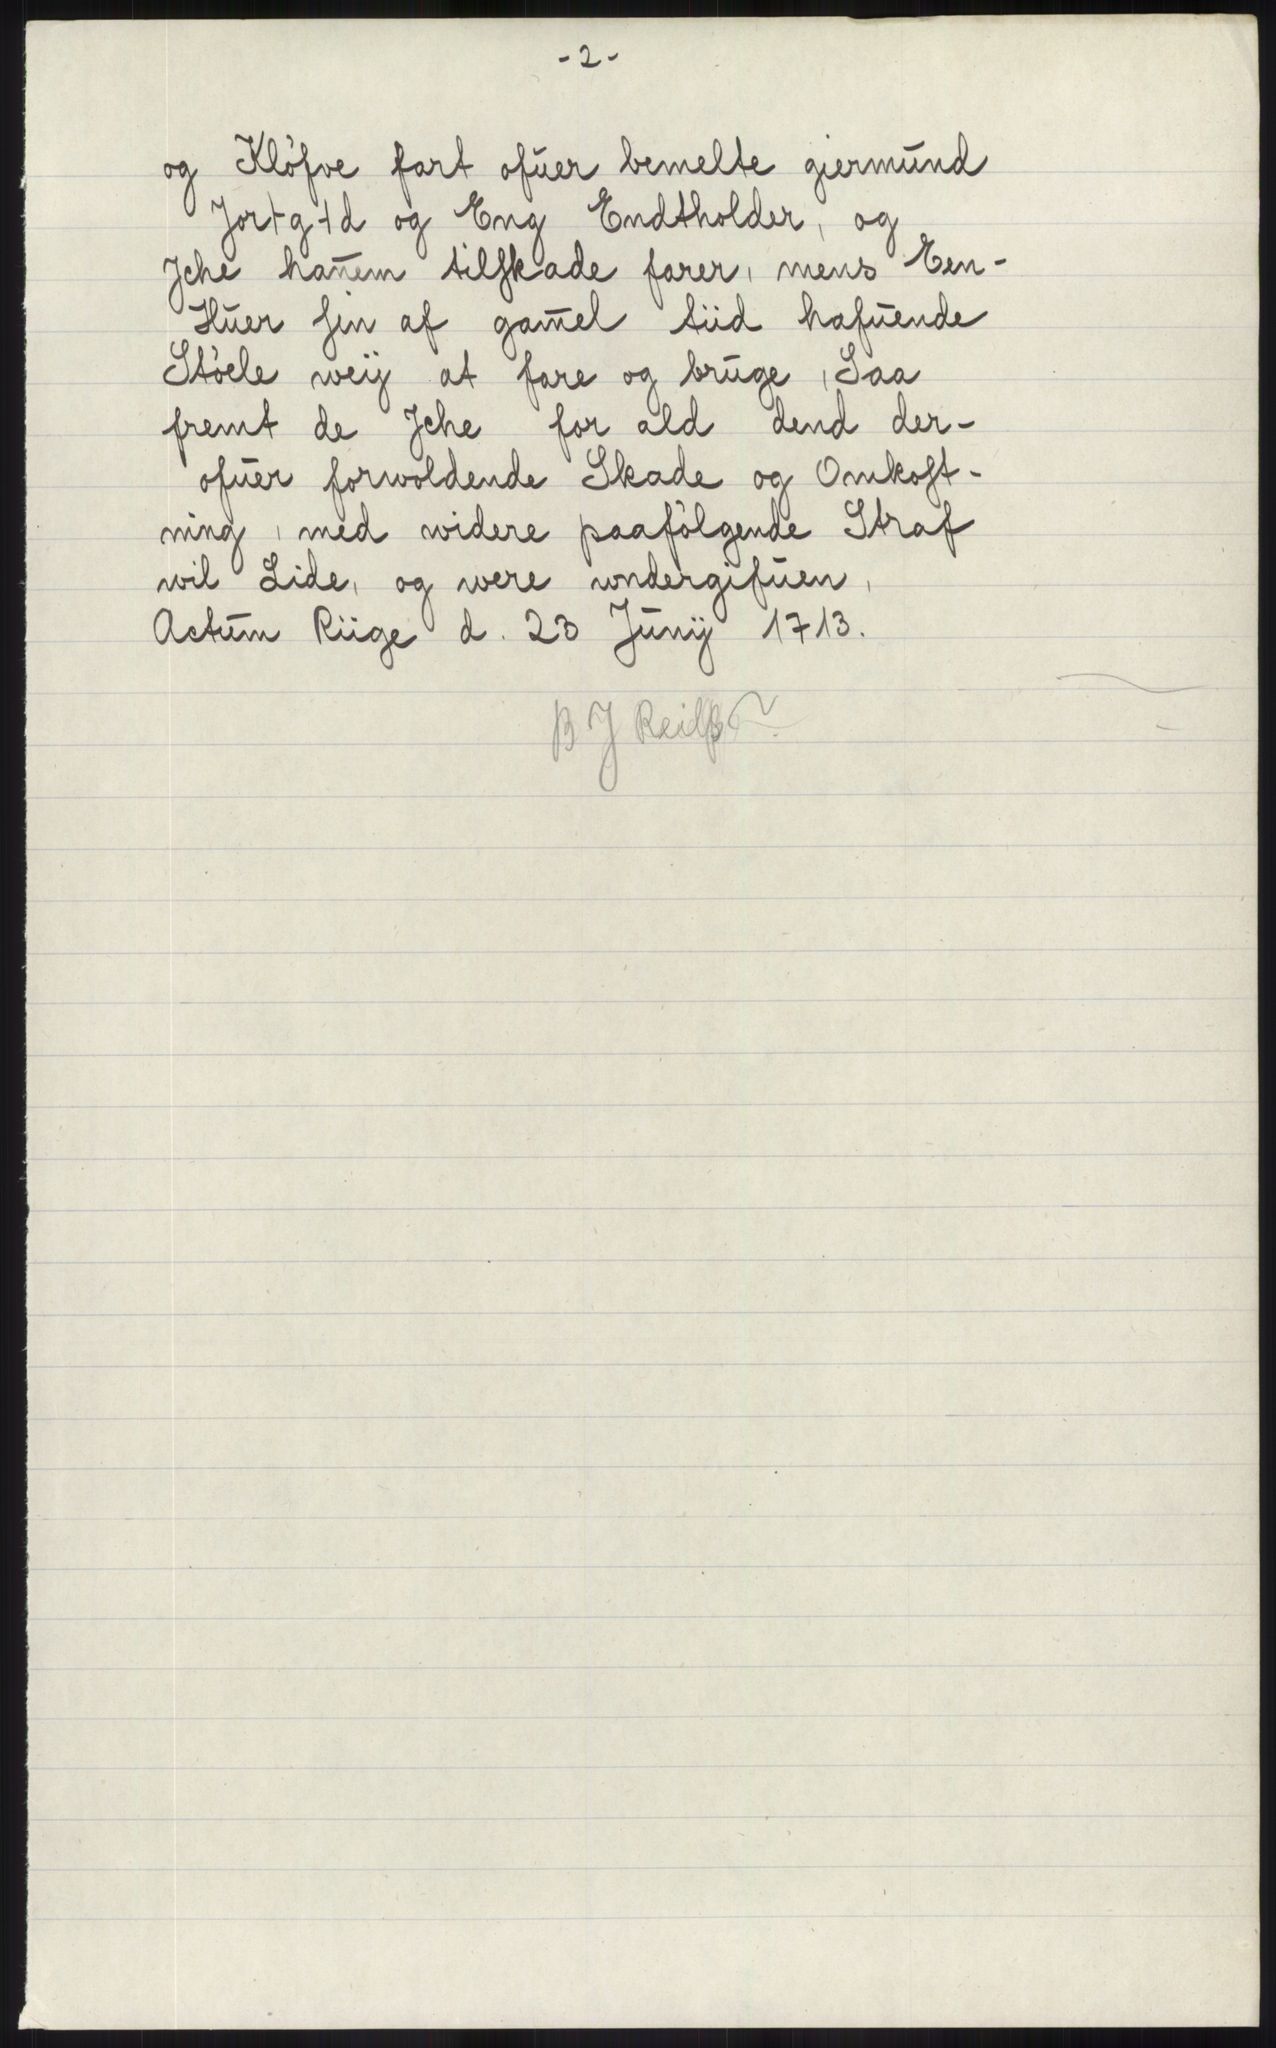 - 2 -
og Kløfve fart ofuer bemelte giermund
Jor+g+d og Eng Endtholder, og
Jche hañem tilſkade farer, mens Een-
Huer ſin af gam̄el tiid hafuende
Støele weij at fare og bruge, Saa
fremt de Jche for ald dend der-
ofuer forvoldende Skade og Omkoſt-
ning, med widere paafølgende Straf
wil Lide, og were undergifuen,
Actum Riige d. 23 Junij 1713.
B J